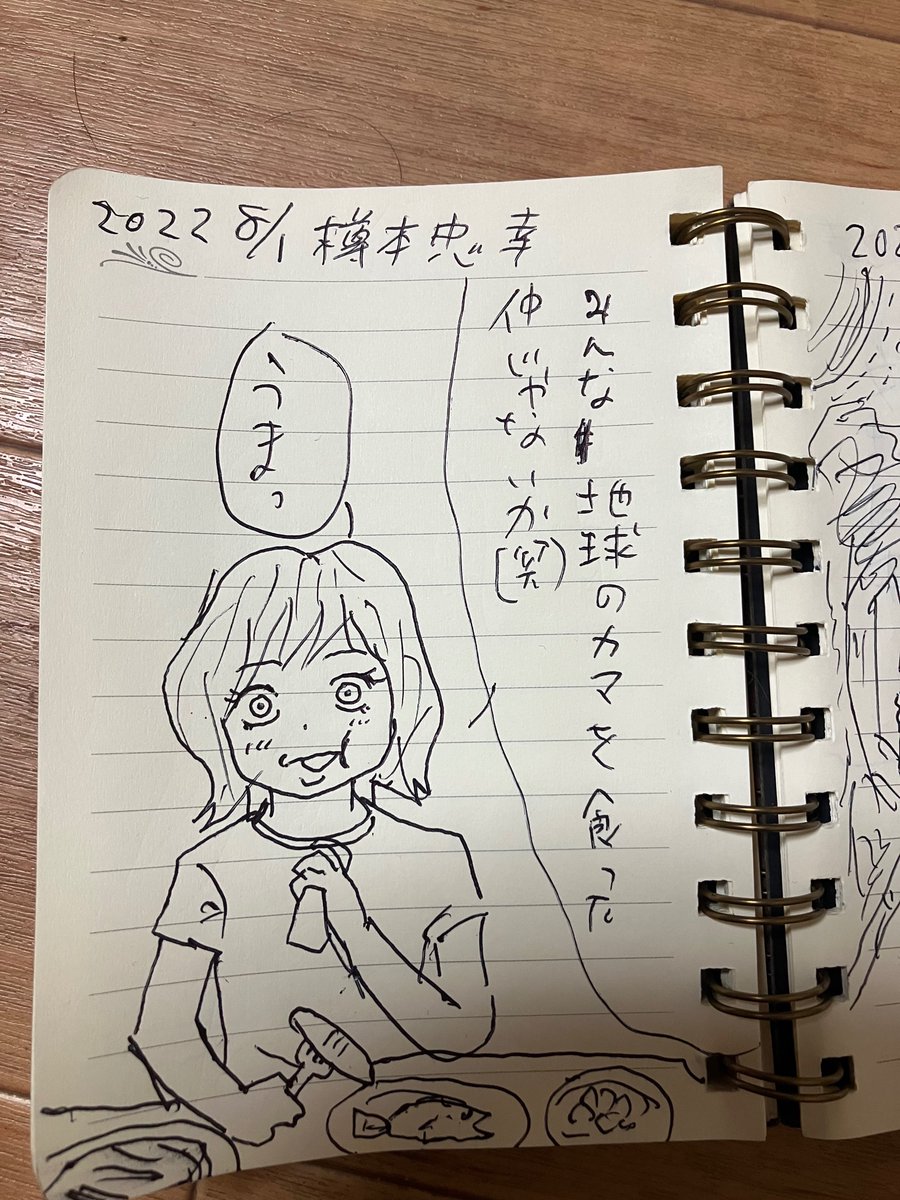 2022 8/1 樽本忠幸
みんな地球のカマを食った
仲じゃないか(笑)
うまっ
202